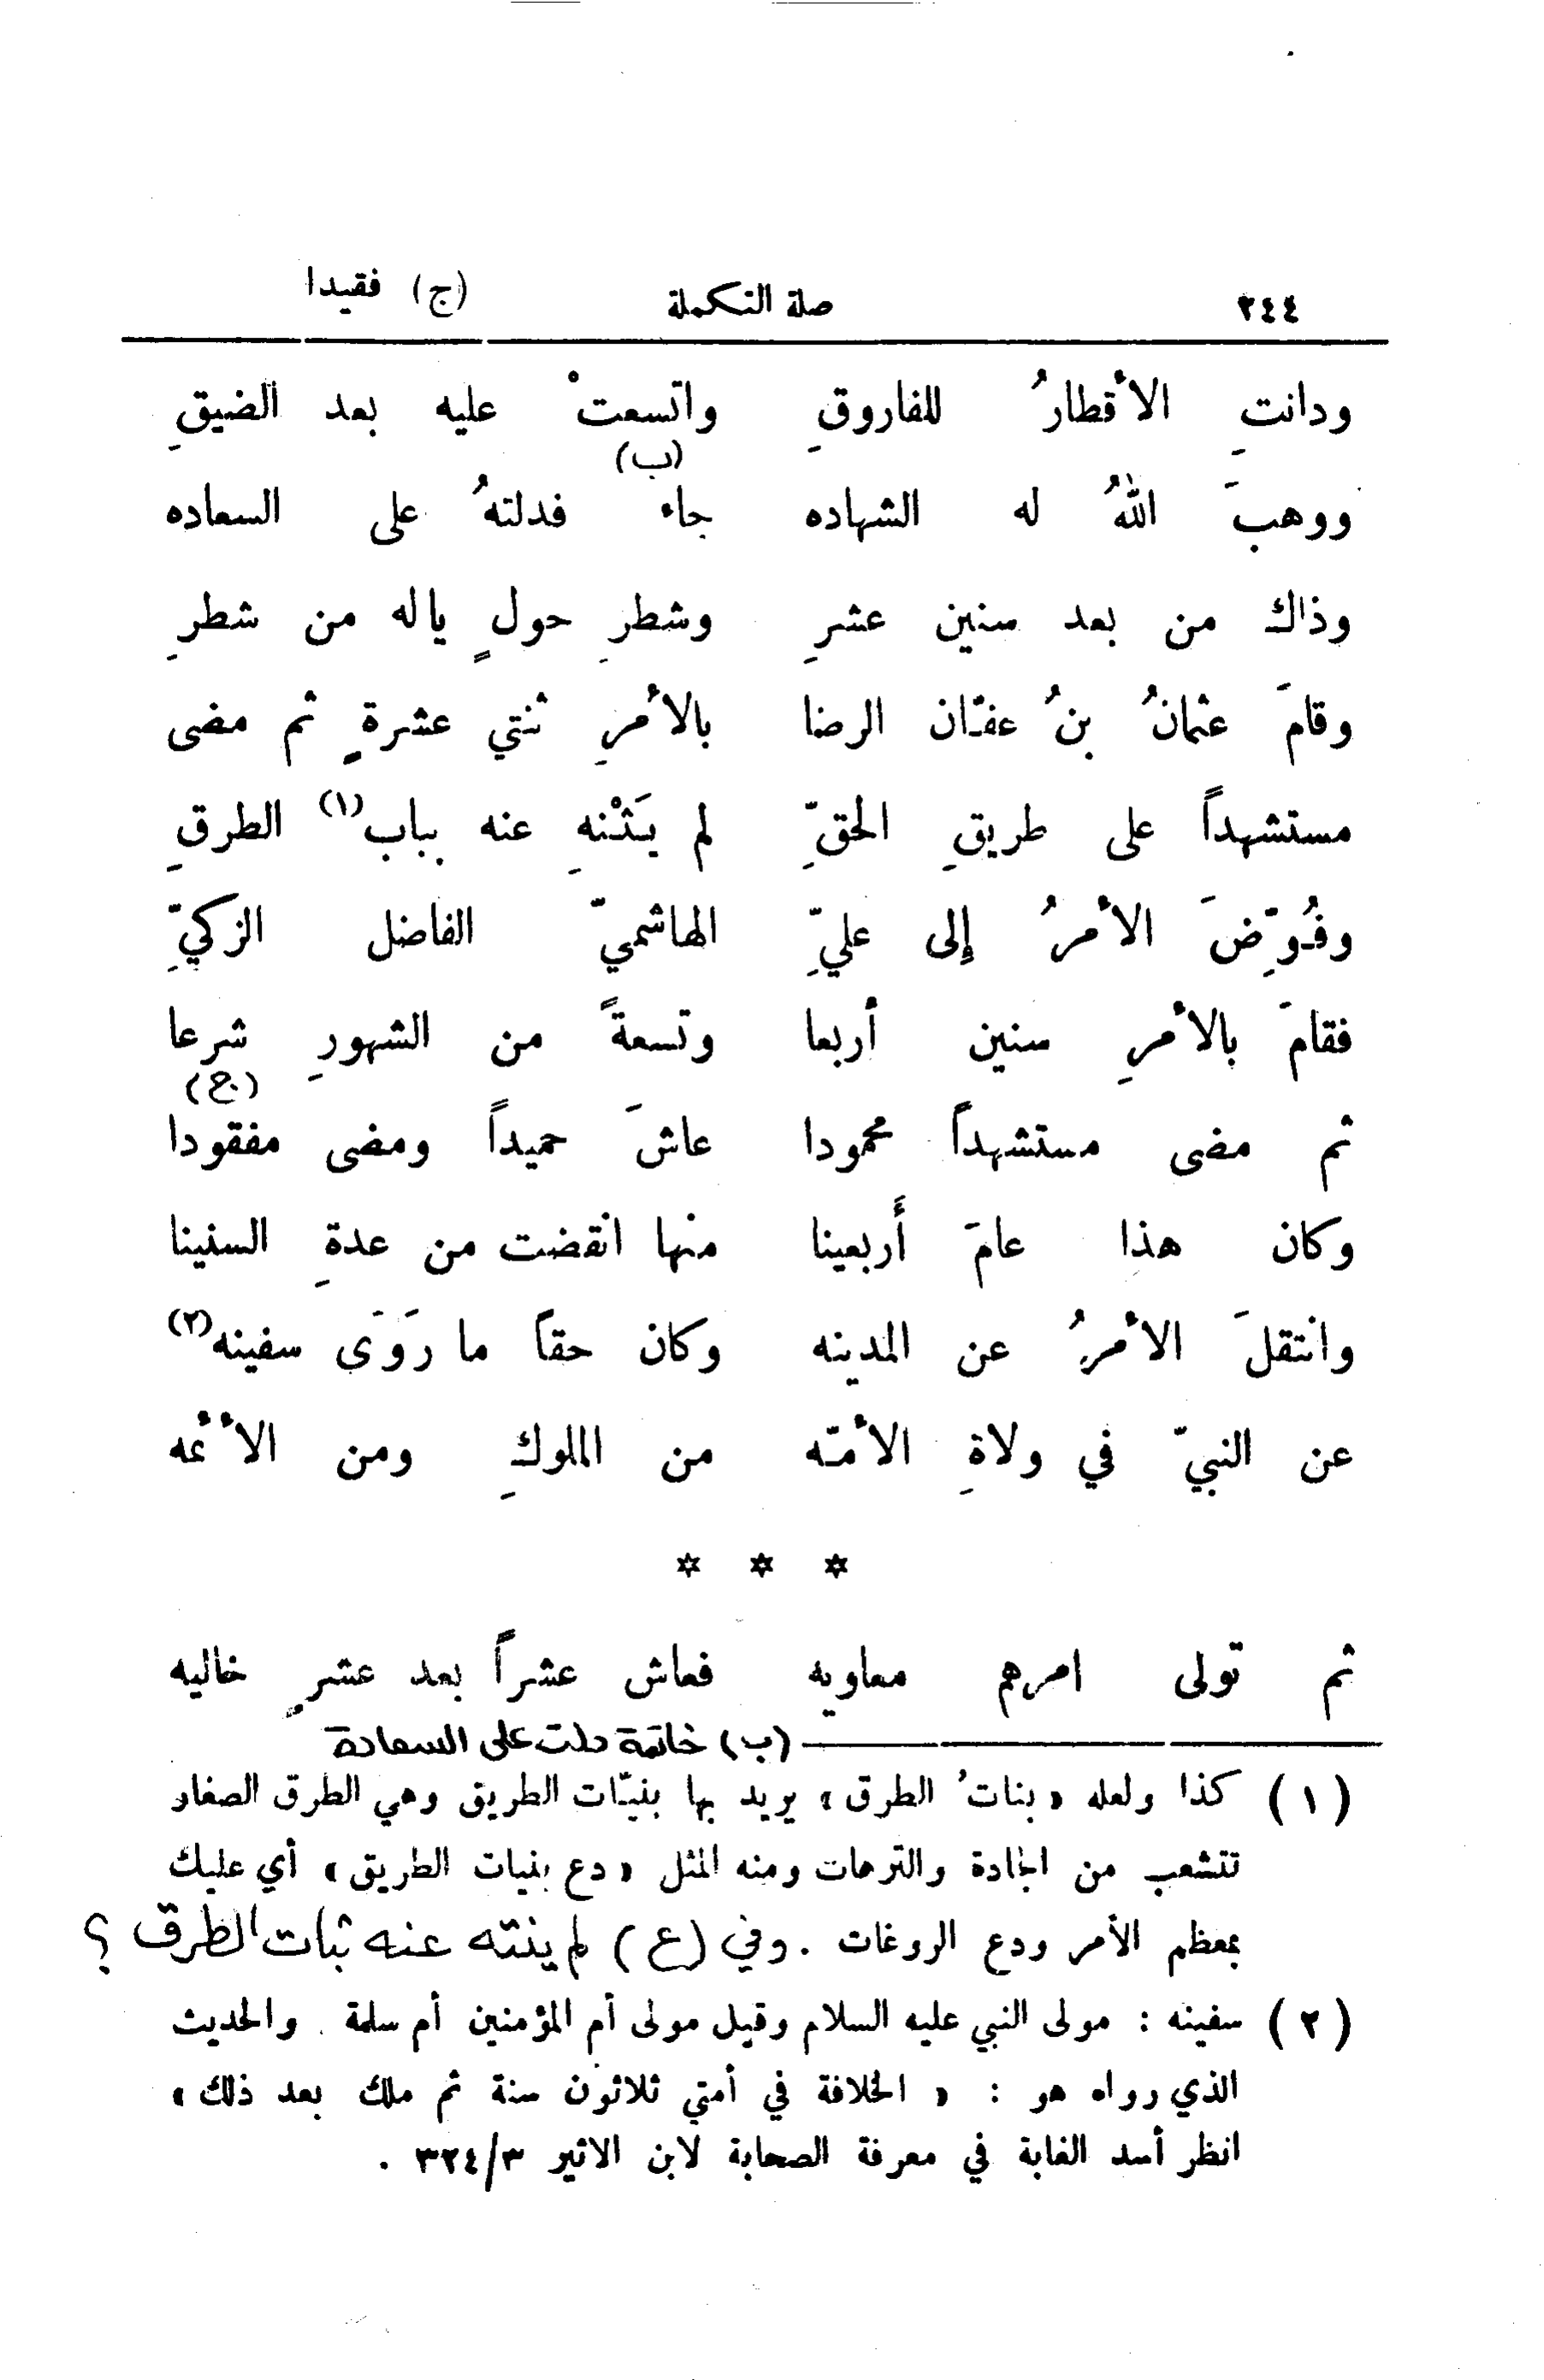 ٢٤٤ صلة التكملة (ج) فقيدا
ودانتِ الأقطارُ للفاروقِ واتسعتْ عليه بعد الضيقِ
(ب)
ووهبَ اللهُ له الشهاده جاء فدلتهُ على السعاده
وذاك من بعد سنين عشرِ وشطرِ حولٍ ياله من شطرِ
وقامَ عثمانُ بنُ عفّان الرضا بالأمرِ ثنتي عشرةٍ ثم مضى
مستشهداً على طريقِ الحقِّ لم يَثْنهِ عنه بباب(١) الطرقِ
وفُوِّضَ الأمرُ إلى عليِّ الهاشميّ الفاضل الزكيِّ
فقامَ بالأمرِ سنين أربعا وتسعةً من الشهورِ شرعا
(ج)
ثم مضى مستشهداً محمودا عاشَ حميداً ومضى مفقودا
وكان هذا عامَ أَربعينا منها انقضت من عدةِ السنينا
وانتقلَ الأمرُ عن المدينه وكان حقاً ما رَوَى سفينه(٢)
عن النبيّ في ولاةِ الأمّه من الملوكِ ومن الأئمه
* * *
ثم تولى امرهم معاويه فعاش عشراً بعد عشرٍ خاليه
(ب) خاتمة دلت على السعادة
(١) كذا ولعله «بناتُ الطرق» يريد بها بنيّات الطريق وهي الطرق الصغار
تتشعب من الجادة والترهات ومنه المثل «دع بنيات الطريق» أي عليك
بمعظم الأمر ودع الروغات . وفي (ع) لم ينته عنه ثبات الطرق ؟
(٢) سفينه : مولى النبي عليه السلام وقيل مولى أم المؤمنين أم سلمة . والحديث
الذي رواه هو : « الخلافة في أمتي ثلاثون سنة ثم ملك بعد ذلك »
انظر أسد الغابة في معرفة الصحابة لابن الاثير ٣٢٤/٣ .